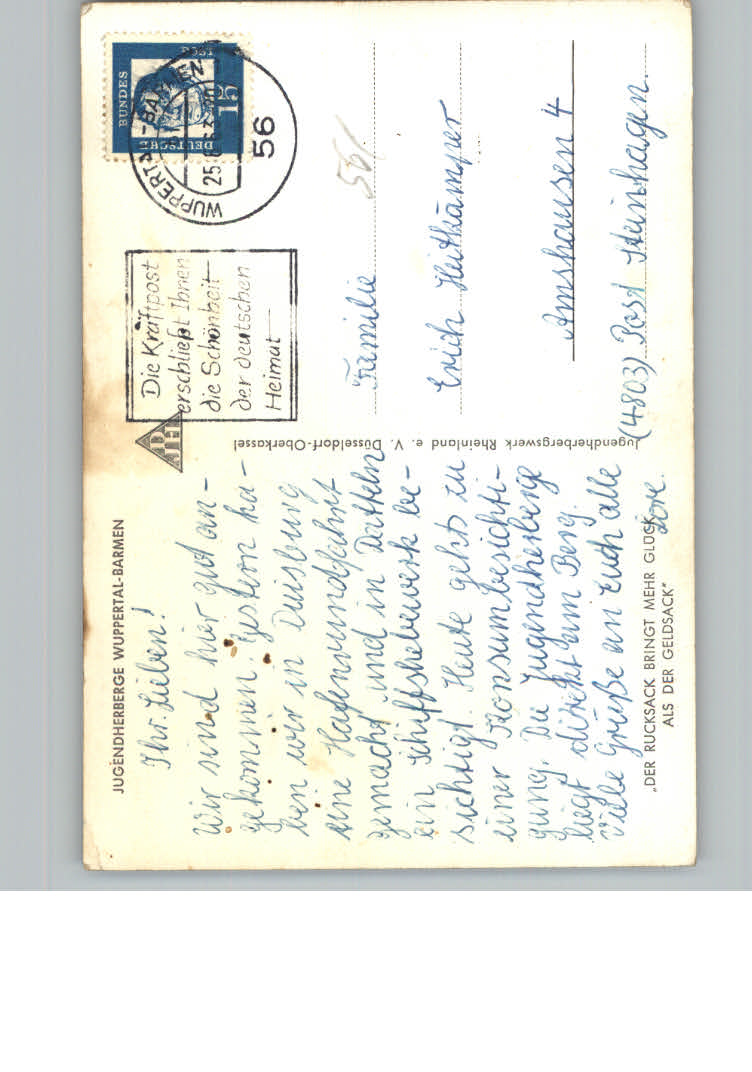 JUGENDHERBERGE WUPPERTAL-BARMEN
Ihr Lieben!
Wir sind hier gut an-
gekommen. Gestern ha-
ben wir in Duisburg
eine Hafenrundfahrt
gemacht und in Datteln
ein Schiffshebewerk be-
sichtigt. Heute gehts zu
einer Konsumbesichti-
gung. Die Jugendherberge
liegt direkt am Berg.
Viele Grüße an Euch alle
Lore.
„DER RUCKSACK BRINGT MEHR GLÜCK
ALS DER GELDSACK"
Jugendherbergswerk Rheinland e. V. Düsseldorf-Oberkassel
DJH
Die Kraftpost
erschließt Ihnen
die Schönheit
der deutschen
Heimat
WUPPERTAL-BARMEN
25
56
DEUTSCHE
BUNDES
POST
15
561
Familie
Erich Heitkämper
Amshausen 4
(4803) Post Steinhagen.